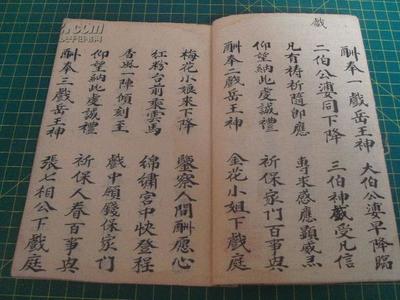 戲
酬奉一戲岳王神 大伯公婆早降臨
二伯公婆同下降 三伯神戲受凡信
凡有禱祈隨即應 專求感應顯威灵
仰望納此虔誠禮 祈保家門百事興
酬奉二戲岳王神 金花小姐下戲庭
梅花小娘來下降 鑒察人間酬愿心
紅粉台前乘雲馬 綿繡宮中快登程
香烟一陣傾刻至 戲中願錢保家門
仰望納此虔誠禮 祈保人眷百事興
酬奉三戲岳王神 張七相公下戲庭